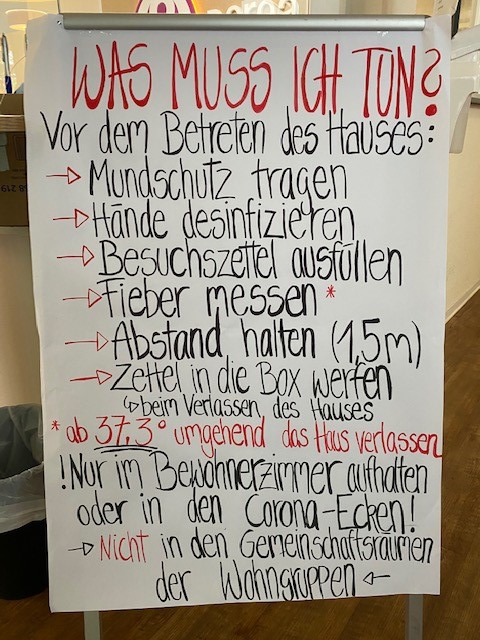 WAS MUSS ICH TUN?
Vor dem Betreten des Hauses:
→ Mundschutz tragen
→ Hände desinfizieren
→ Besuchszettel ausfüllen
→ Fieber messen *
→ Abstand halten (1,5m)
→ Zettel in die Box werfen
↳ beim Verlassen des Hauses
* ab 37,3° umgehend das Haus verlassen
!Nur im Bewohnerzimmer aufhalten
oder in den Corona-Ecken!
→ Nicht in den Gemeinschaftsräumen
der Wohngruppen ←